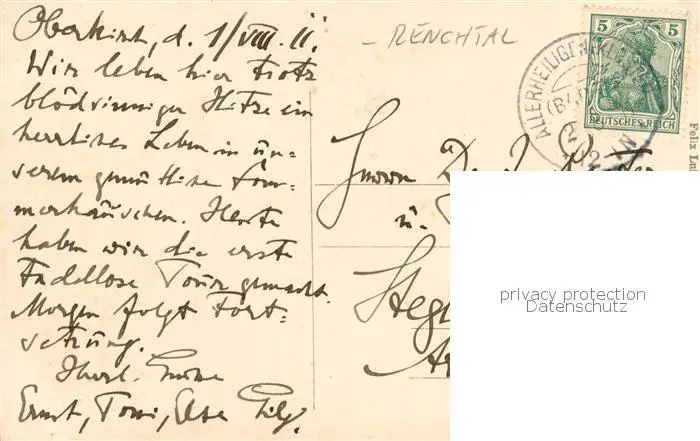 Oberkirch, d. 1/VIII. 11.
Wir leben hier trotz
blödsinniger Hitze ein
herrliches Leben in un-
serem gemütlichen Som-
merhäuschen. Heute
haben wir die erste
tadellose Tour gemacht.
Morgen folgt Fort-
setzung.
Herzl. Grüße
Ernst, Toni, Else
- RENCHTAL
5 5
DEUTSCHES REICH
ALLERHEILIGEN
(BADEN)
Herrn
u.
Stegl
privacy protection
Datenschutz
Felix Lu